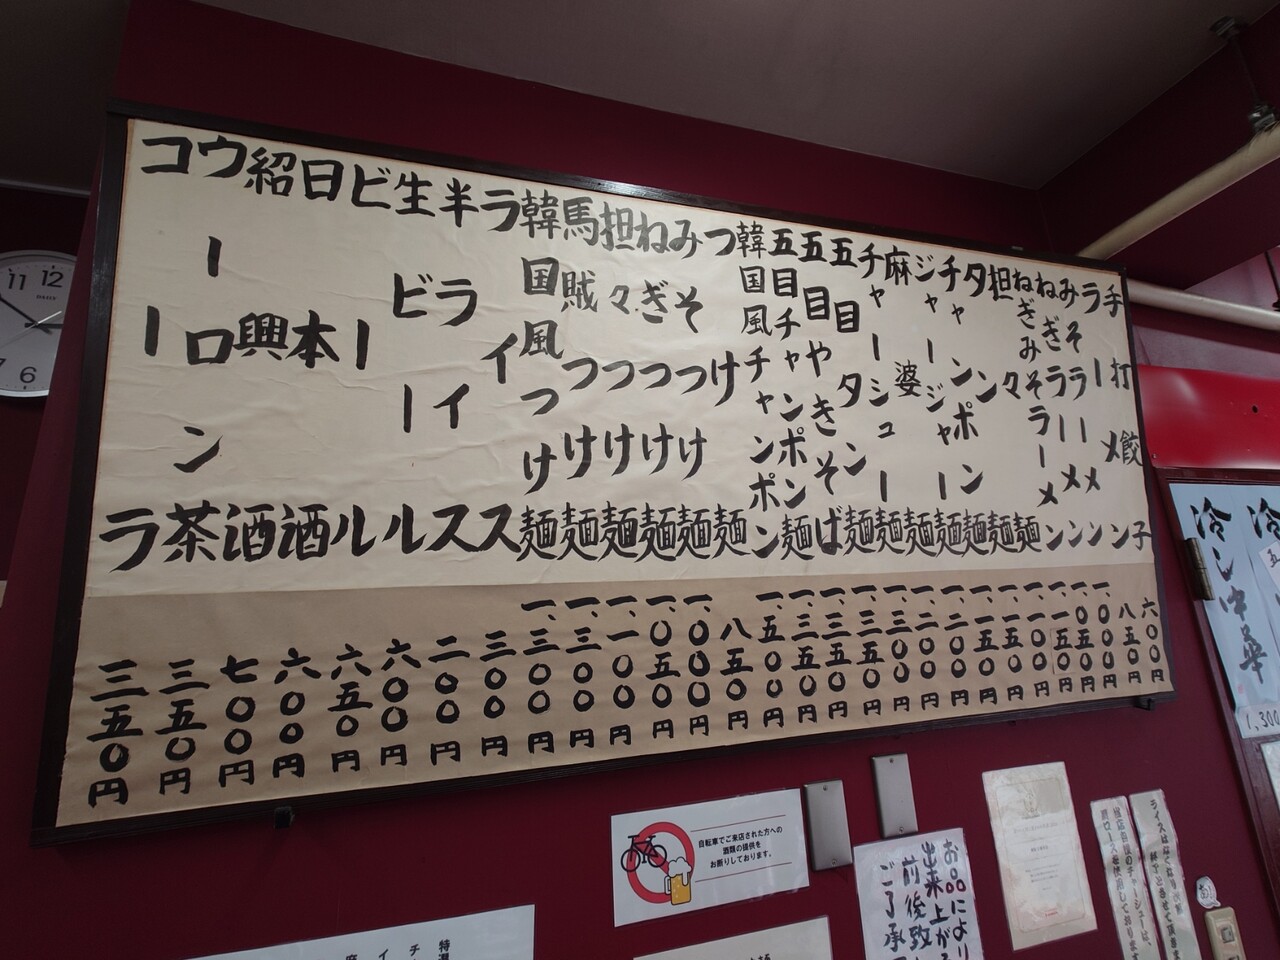 手打餃子 六〇〇円
ラーメン 八五〇円
みそラーメン 一、〇〇〇円
ねぎラーメン 一、〇五〇円
ねぎみそラーメン 一、一五〇円
担々麺 一、一〇〇円
タン麺 一、一五〇円
チャンポン麺 一、一五〇円
ジャージャー麺 一、二〇〇円
麻婆麺 一、二〇〇円
チャーシュー麺 一、三〇〇円
五目タン麺 一、三五〇円
五目やきそば 一、三五〇円
五目チャンポン麺 一、三五〇円
韓国風チャンポン 一、五〇〇円
つけ麺 八五〇円
みそつけ麺 一、〇〇〇円
ねぎつけ麺 一、〇五〇円
担々つけ麺 一、一〇〇円
馬賊つけ麺 一、三〇〇円
韓国風つけ麺 一、三〇〇円
ライス 三〇〇円
半ライス 二〇〇円
生ビール 六〇〇円
ビール 六五〇円
日本酒 六〇〇円
紹興酒 七〇〇円
ウーロン茶 三五〇円
コーラ 三五〇円
冷し中華
1,300
自転車でご来店された方への
酒類の提供を
お断りしております。
お品により
出来上が
前後致
ご了承
ライスはなくなり次第
終了とさせて頂きま
当店自慢のチャーシューは、
肩ロースを使用しております
DAILY
11 12
6